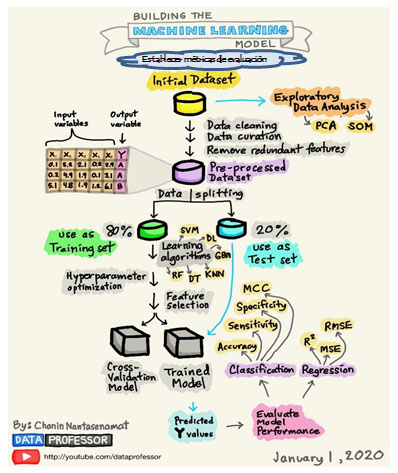 BUILDING THE
MACHINE LEARNING
MODEL
Establecer métricas de evaluación
Initial Dataset
Exploratory
Data Analysis
PCA
SOM
Input
variables
Output
variable
Data cleaning
Data curation
Remove redundant features
Pre-processed
Dataset
Data splitting
80%
20%
use as
Training set
use as
Test set
Learning
algorithms
SVM
DL
GBM
KNN
DT
RF
Hyperparameter
optimization
Feature
selection
Cross-
Validation
Model
Trained
Model
MCC
Specificity
Sensitivity
Accuracy
Classification
R²
MSE
RMSE
Regression
Predicted
Y values
Evaluate
Model
Performance
By: Chanin Nantasenamat
DATA PROFESSOR
http://youtube.com/dataprofessor
January 1, 2020